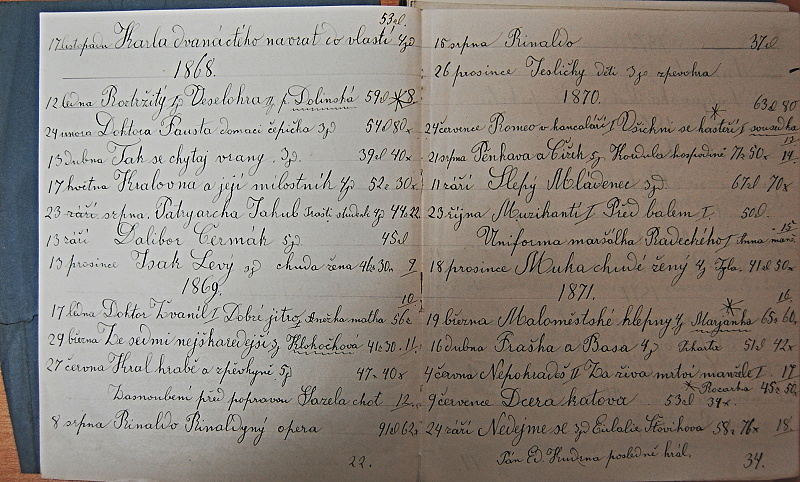 53zl.
17 listopadu Karla dvanáctého navrat do vlasti 4jd
1868.
12 ledna Roztržitý 1jd Veselohra II p. Dolinská 59zl *8
24 unora Doktora Fausta domaci čepička 3jd 54zl 80x
13 dubna Tak se chytaj vrany. 3jd. 39zl 40x
17 května Kralovna a její milostník 4jd 52z 30x
23 září srpna. Patryarcha Jakub student 4jd 44z22
13 září Dalibor Čermák 5jd. 45zl
13 prosince Isak Levý 5jd chuda žena 46z30x 9
1869. 10
17 ledna Doktor Zvaníl I Dobré jitro I Anežka matka 56z
29 března Ze sedmi nejškaredější 3j Klokočkova 41z30. 11.
27 června Kral hrabě a zpěvkyně 5jd 47z 40x
Zasnoubení před popravou Lazela chot 12.
8 srpna Rinaldo Rinaldyny opera 91zl62x
22.
15 srpna Rinaldo 37zl
26 prosince Jesličky děti 3jd zpevohra
1870.
63zl 80
24 července Romeo v kancaláří I Všichni se hašteří I sousedka
21 srpna Pěnkava a Čížek 5j Koudula hospodině 77z 50x 14.
11 září Slepý Mládenec 5jd 67zl 70x
23 října Muzikantí I Před balem I. 50zl.
Uniforma maršálka Radeckého I Anna 15
18 prosince Muka chudé ženy 4j Tyla. 41zl 50x
1871. 16.
19 března Maloměstské klepny 4j Marjanka 65z 60
16 dubna Fraška a Basa 4jd 51zl 42x
4 června Nepohradeš II Za živa mrtví manžele I 17
* Rocarka 45z 50
9 července Dcera katova 53zl 34x.
24 září Nedejme se 3jd Eulalie Šťovíkova 58z 76x 18.
Pán Ed. Kudrna posledně hrál.
34.